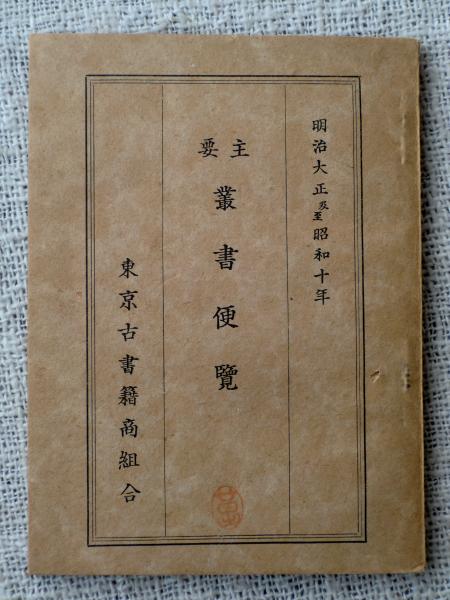 明治大正及至昭和十年
主要
叢書便覽
東京古書籍商組合